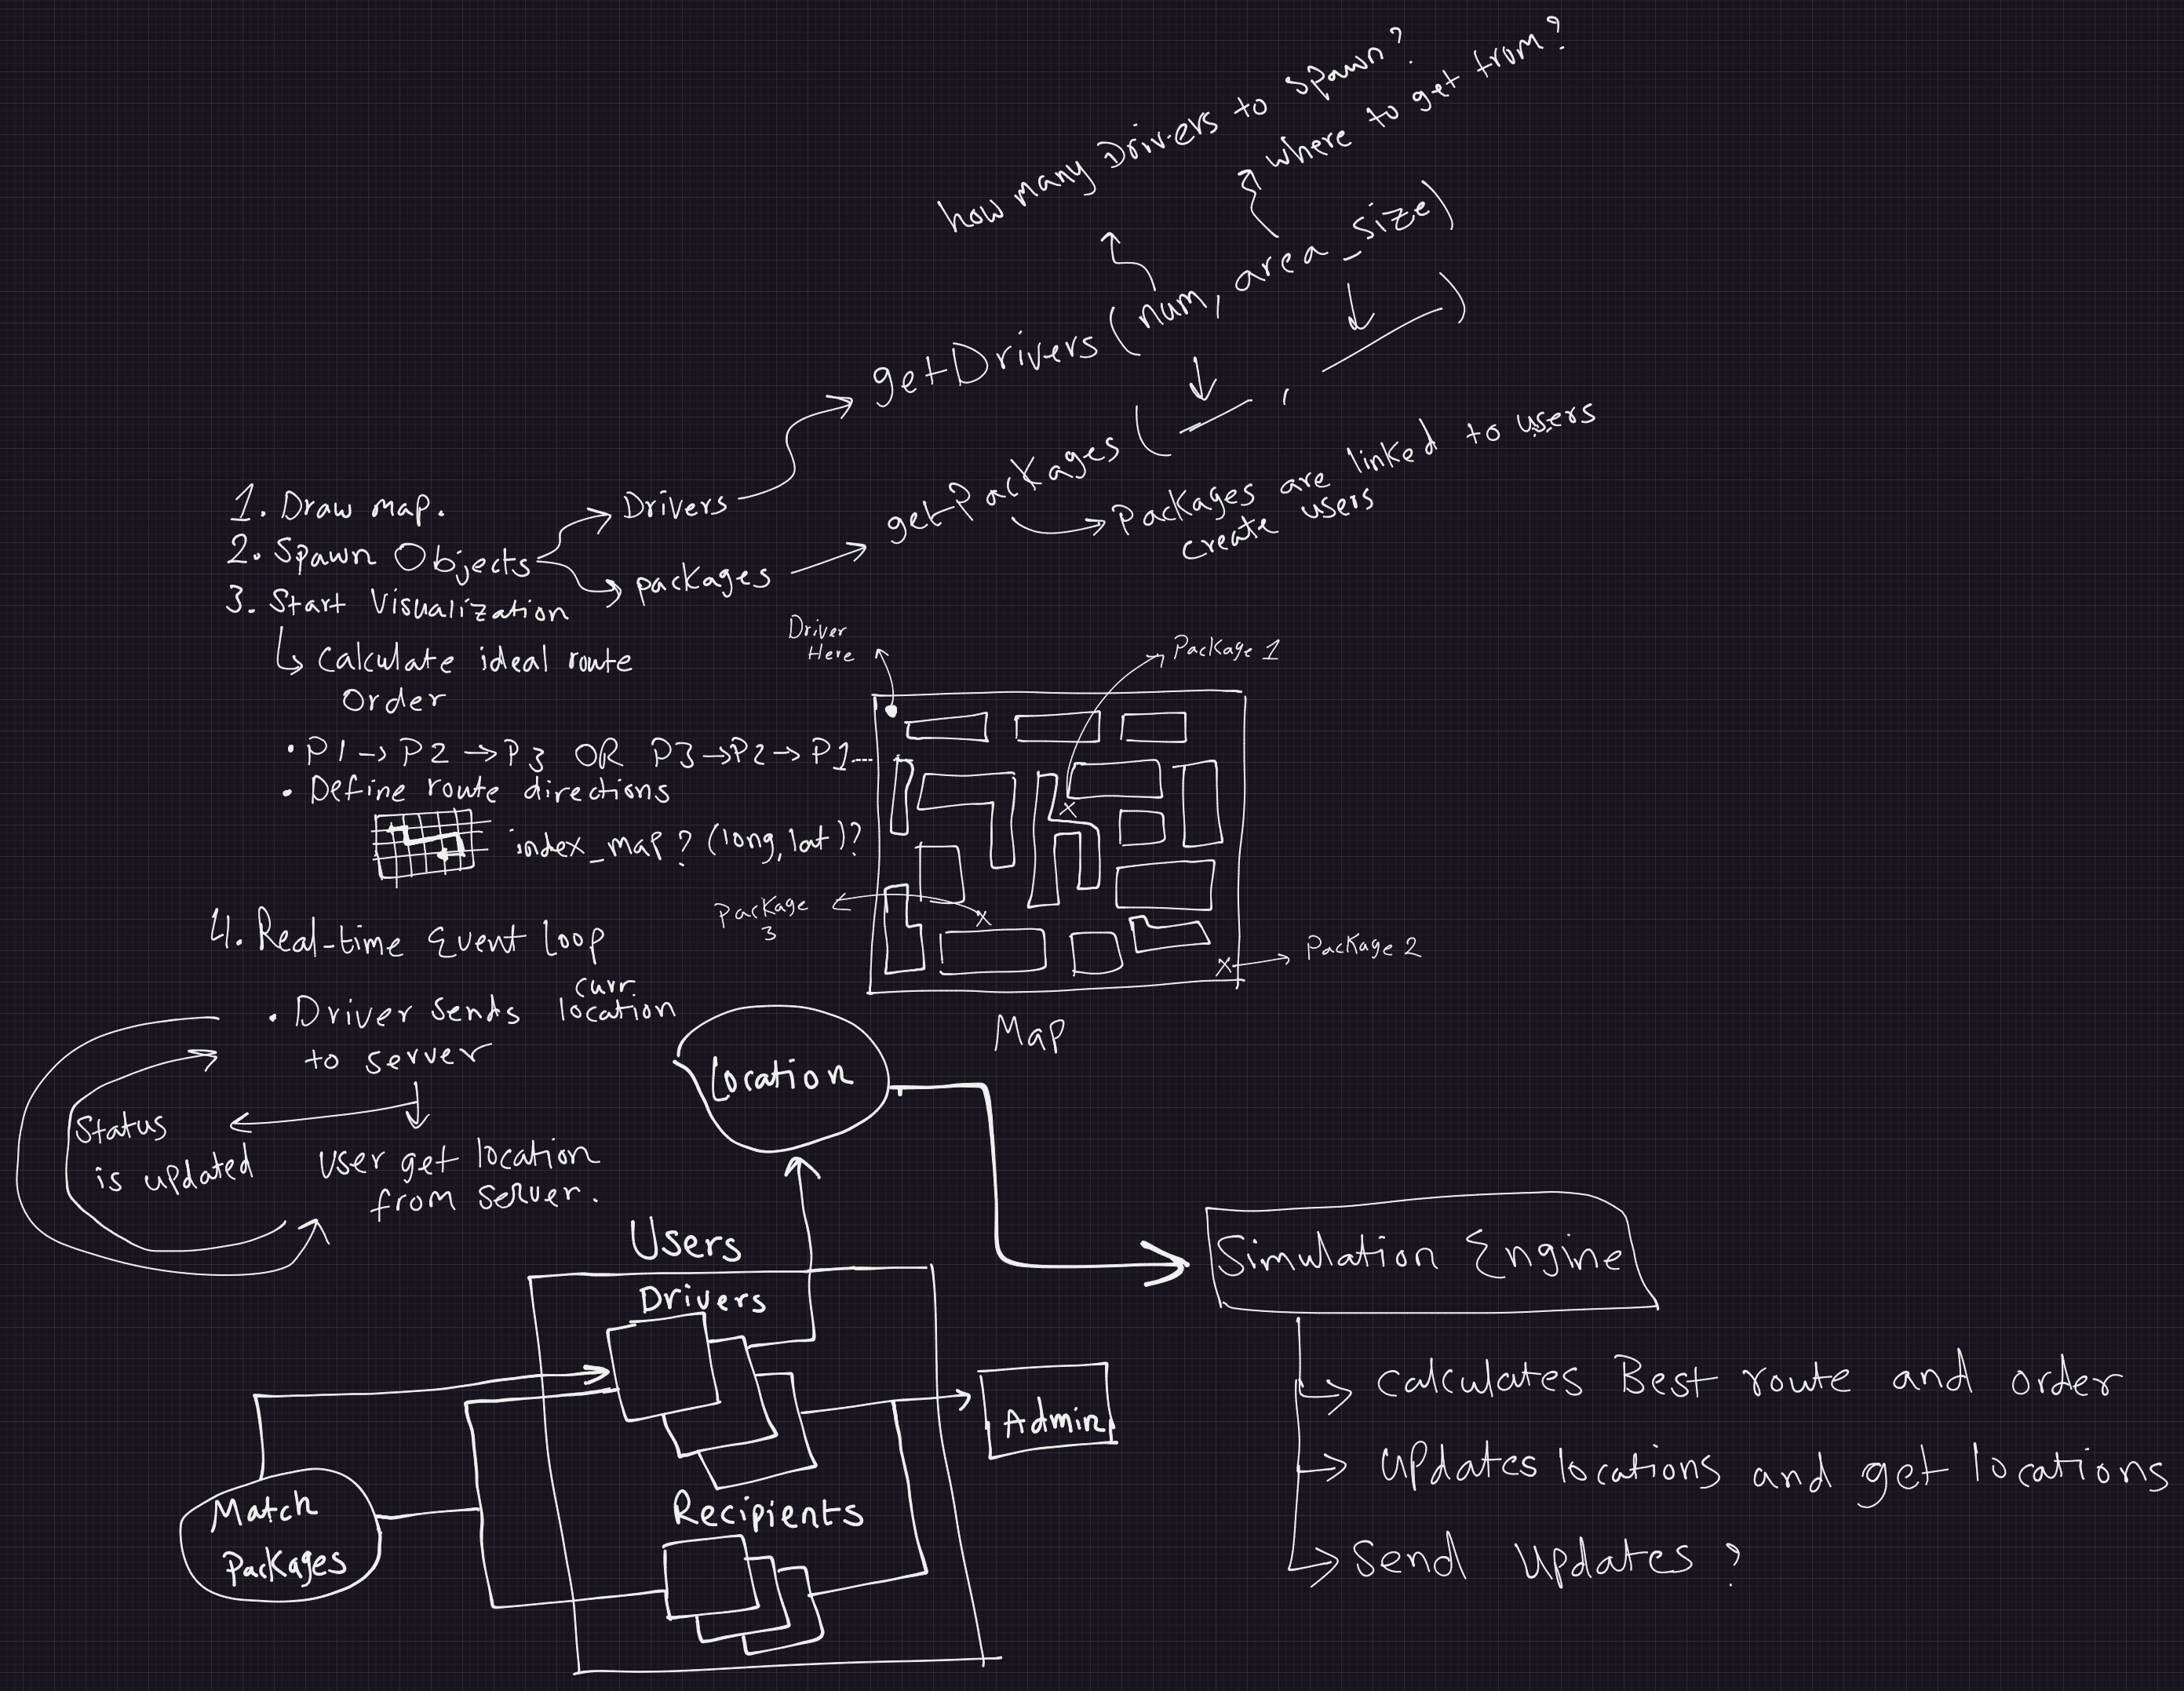 how many Drivers to spawn?
where to get from?
getDrivers (num, area_size)
getPackages ( , )
Packages are linked to users
create users
1. Draw map.
2. Spawn Objects
3. Start Visualization
Drivers
packages
Calculate ideal route
Order
• P1 -> P2 -> P3 OR P3 -> P2 -> P1...
• Define route directions
index_map? (long, lat)?
Driver
Here
Package 1
Package
3
Package 2
Map
4. Real-time Event Loop
curr.
• Driver sends location
to server
Status
is updated
User get location
from server.
Location
Users
Drivers
Recipients
Admin
Match
Packages
Simulation Engine
Calculates Best route and order
Updates locations and get locations
Send Updates?